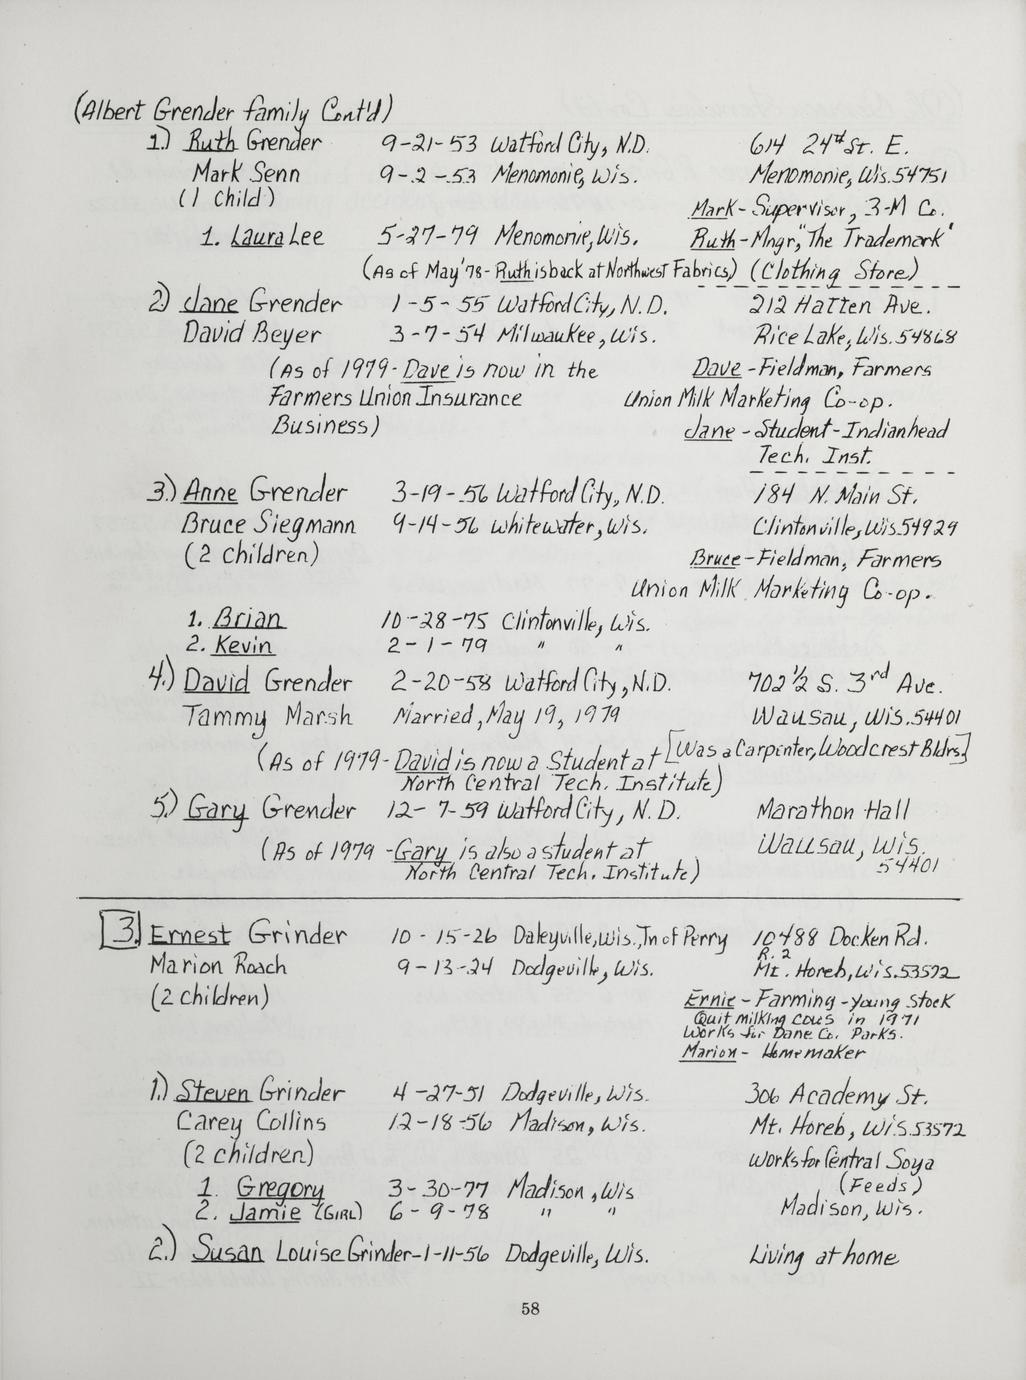 (Albert Grender family Cont'd)
1.) Ruth Grender 9-21-53 Watford City, N.D. 614 24th St. E.
Mark Senn 9-2-53 Menomonie, Wis. Menomonie, Wis. 54751
(1 child) Mark - Supervisor, 3-M Co.
1. Laura Lee 5-27-79 Menomonie, Wis. Ruth - Mngr, "The Trademark"
(As of May '78 - Ruth is back at Northwest Fabrics,) (Clothing Store)
2.) Jane Grender 1-5-55 Watford City, N.D. 212 Hatten Ave.
David Beyer 3-7-54 Milwaukee, Wis. Rice Lake, Wis. 54868
(As of 1979 - Dave is now in the Dave - Fieldman, Farmers
Farmers Union Insurance Union Milk Marketing Co-op.
Business) Jane - Student - Indianhead
Tech. Inst.
3.) Anne Grender 3-19-56 Watford City, N.D. 184 N. Main St.
Bruce Siegmann 9-14-56 Whitewater, Wis. Clintonville, Wis. 54929
(2 children) Bruce - Fieldman, Farmers
Union Milk Marketing Co-op.
1. Brian 10-28-75 Clintonville, Wis.
2. Kevin 2-1-79 " "
4.) David Grender 2-20-58 Watford City, N.D. 702 1/2 S. 3rd Ave.
Tammy Marsh Married, May 19, 1979 Wausau, Wis. 54401
(As of 1979 - David is now a Student at [Was a Carpenter, Woodcrest Bldrs.]
North Central Tech. Institute)
5.) Gary Grender 12-7-59 Watford City, N.D. Marathon Hall
(As of 1979 - Gary is also a student at Wausau, Wis.
North Central Tech. Institute) 54401
3. Ernest Grinder 10-15-26 Daleyville, Wis., Tn of Perry 10488 Docken Rd.
R. 2
Marion Roach 9-13-24 Dodgeville, Wis. Mt. Horeb, Wis. 53572
(2 children) Ernie - Farming - young stock
Quit milking cows in 1971
Works for Dane Co. Parks.
Marion - Homemaker
1.) Steven Grinder 4-27-51 Dodgeville, Wis. 306 Academy St.
Carey Collins 12-18-56 Madison, Wis. Mt. Horeb, Wis. 53572
(2 children) Works for Central Soya
1. Gregory 3-30-77 Madison, Wis (Feeds)
2. Jamie (Girl) 6-9-78 " " Madison, Wis.
2.) Susan Louise Grinder - 1-11-56 Dodgeville, Wis. Living at home
58